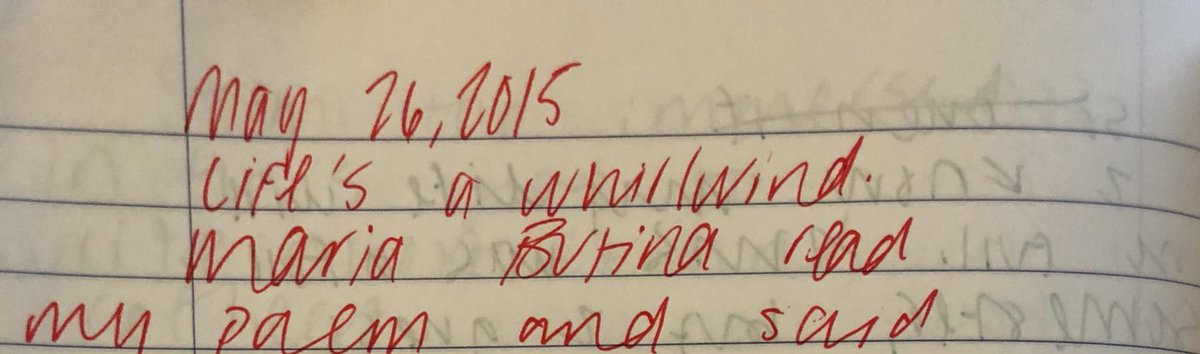 May 26, 2015
Life's a whirlwind.
Maria Butina read
my poem and said